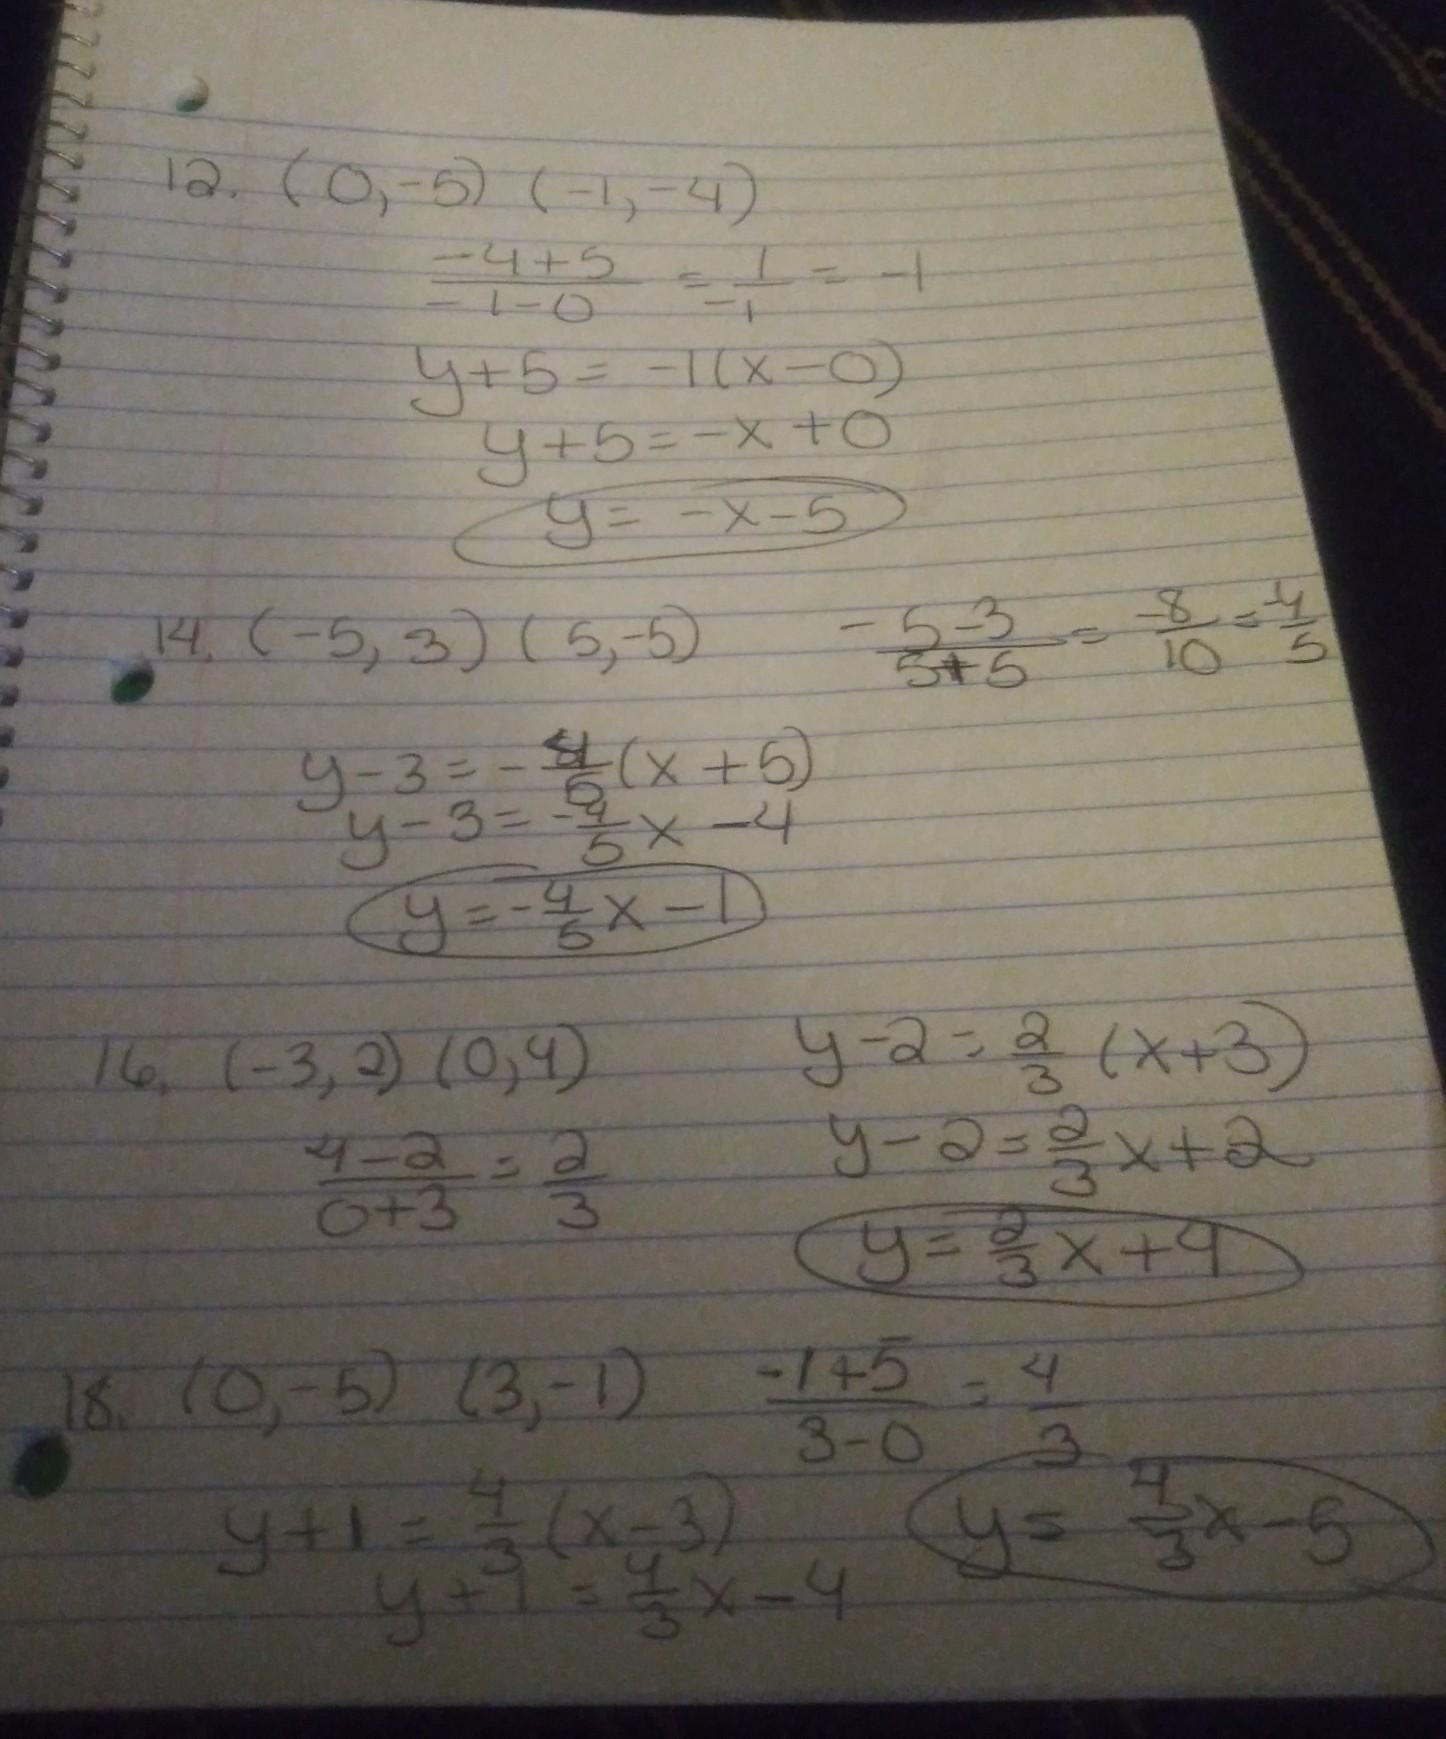 12. (0,-5) (-1,-4)
-4+5/-1-0 = 1/-1 = -1
y+5 = -1(x-0)
y+5=-x+0
y= -x-5
14. (-5, 3) (5,-5) -5-3/5+5 = -8/10 = -4/5
y-3=-4/5(x+5)
y-3=-4/5x-4
y=-4/5x-1
16. (-3,2) (0,4)
4-2/0+3 = 2/3
y-2= 2/3 (x+3)
y-2=2/3x+2
y=2/3x+4
18. (0,-5) (3,-1) -1+5/3-0 = 4/3
y+1 = 4/3 (x-3)
y+1 = 4/3x-4
y= 4/3x-5